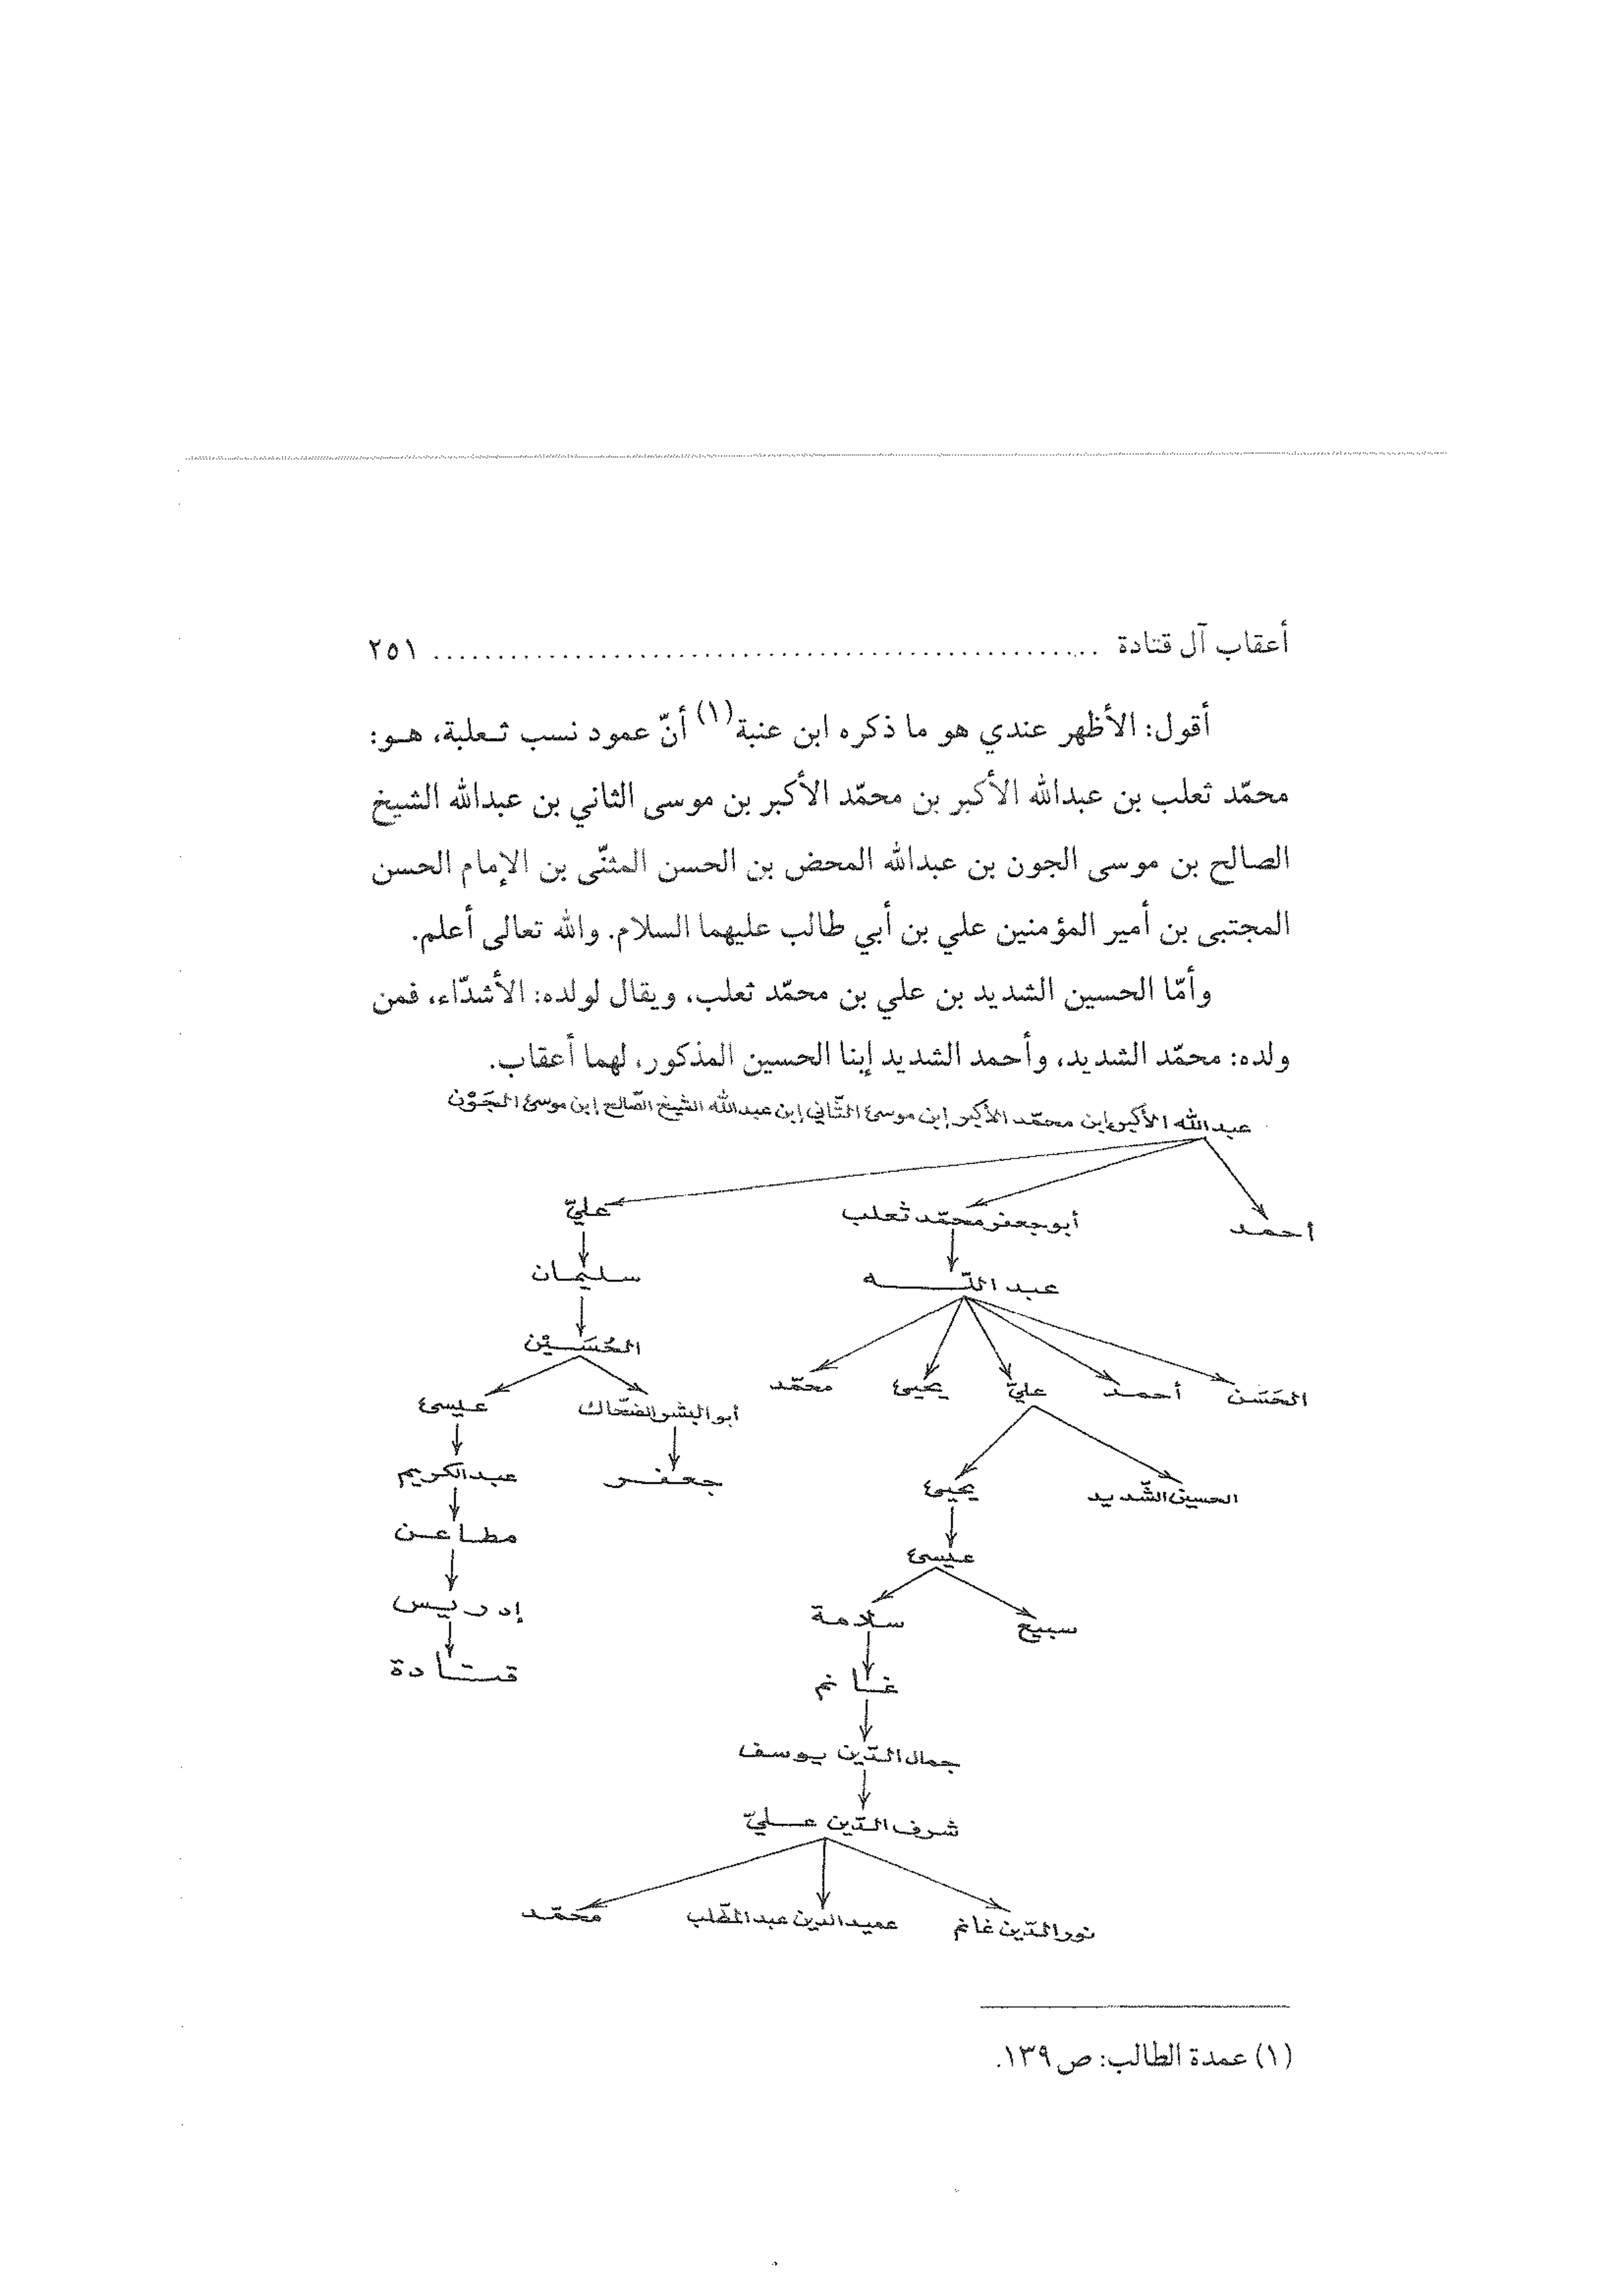 أعقاب آل قتادة ..................................................... ٢٥١
أقول: الأظهر عندي هو ما ذكره ابن عنبة(١) أنّ عمود نسب ثـعلبة، هـو:
محمّد ثعلب بن عبدالله الأكبر بن محمّد الأكبر بن موسى الثاني بن عبدالله الشيخ
الصالح بن موسى الجون بن عبدالله المحض بن الحسن المثنّى بن الإمام الحسن
المجتبى بن أمير المؤمنين علي بن أبي طالب عليهما السلام. والله تعالى أعلم.
وأمّا الحسين الشديد بن علي بن محمّد ثعلب، ويقال لولده: الأشدّاء، فمن
ولده: محمّد الشديد، وأحمد الشديد إبنا الحسين المذكور، لهما أعقاب.
عبدالله الأكبر إبن محمّد الأكبر إبن موسى الثّاني إبن عبدالله الشيخ الصّالح إبن موسى الجَوْن
أحمـد أبو جعفر محمّد ثعلب عليّ
عبد اللّـــه سليمان
الحُسَـيْن
الحَسَن أحمـد عليّ يحيى محمّد
أبو البشر الضّحاك عيسى
الحسين الشّديد يحيى جعفـر عبدالكريم
عيسى مطـاعـن
سبيع سلامة إدريس
غـانم قـتـادة
جمال الدّين يوسف
شرف الدّين عـليّ
نور الدّين غانم عميد الدين عبد المطّلب محمّـد
(١) عمدة الطالب: ص ١٣٩.